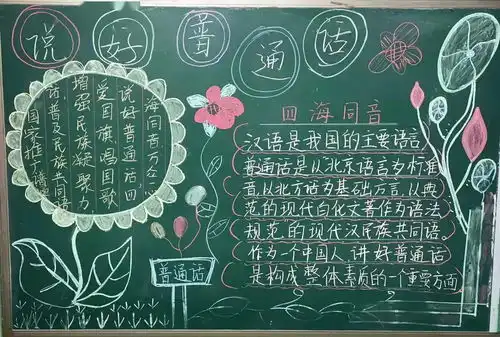 说好普通话
国家推广普通
话普及民族共同语
增强民族凝聚力
国旗唱国歌
说好普通话四
海同音万众一心
普通话
四海同音
汉语是我国的主要语言,
普通话是以北京语言为标准
音,以北方话为基础方言,以典
范的现代白化文著作为语法
规范的现代汉民族共同语。
作为一个中国人,讲好普通话
是构成整体素质的一个重要方面